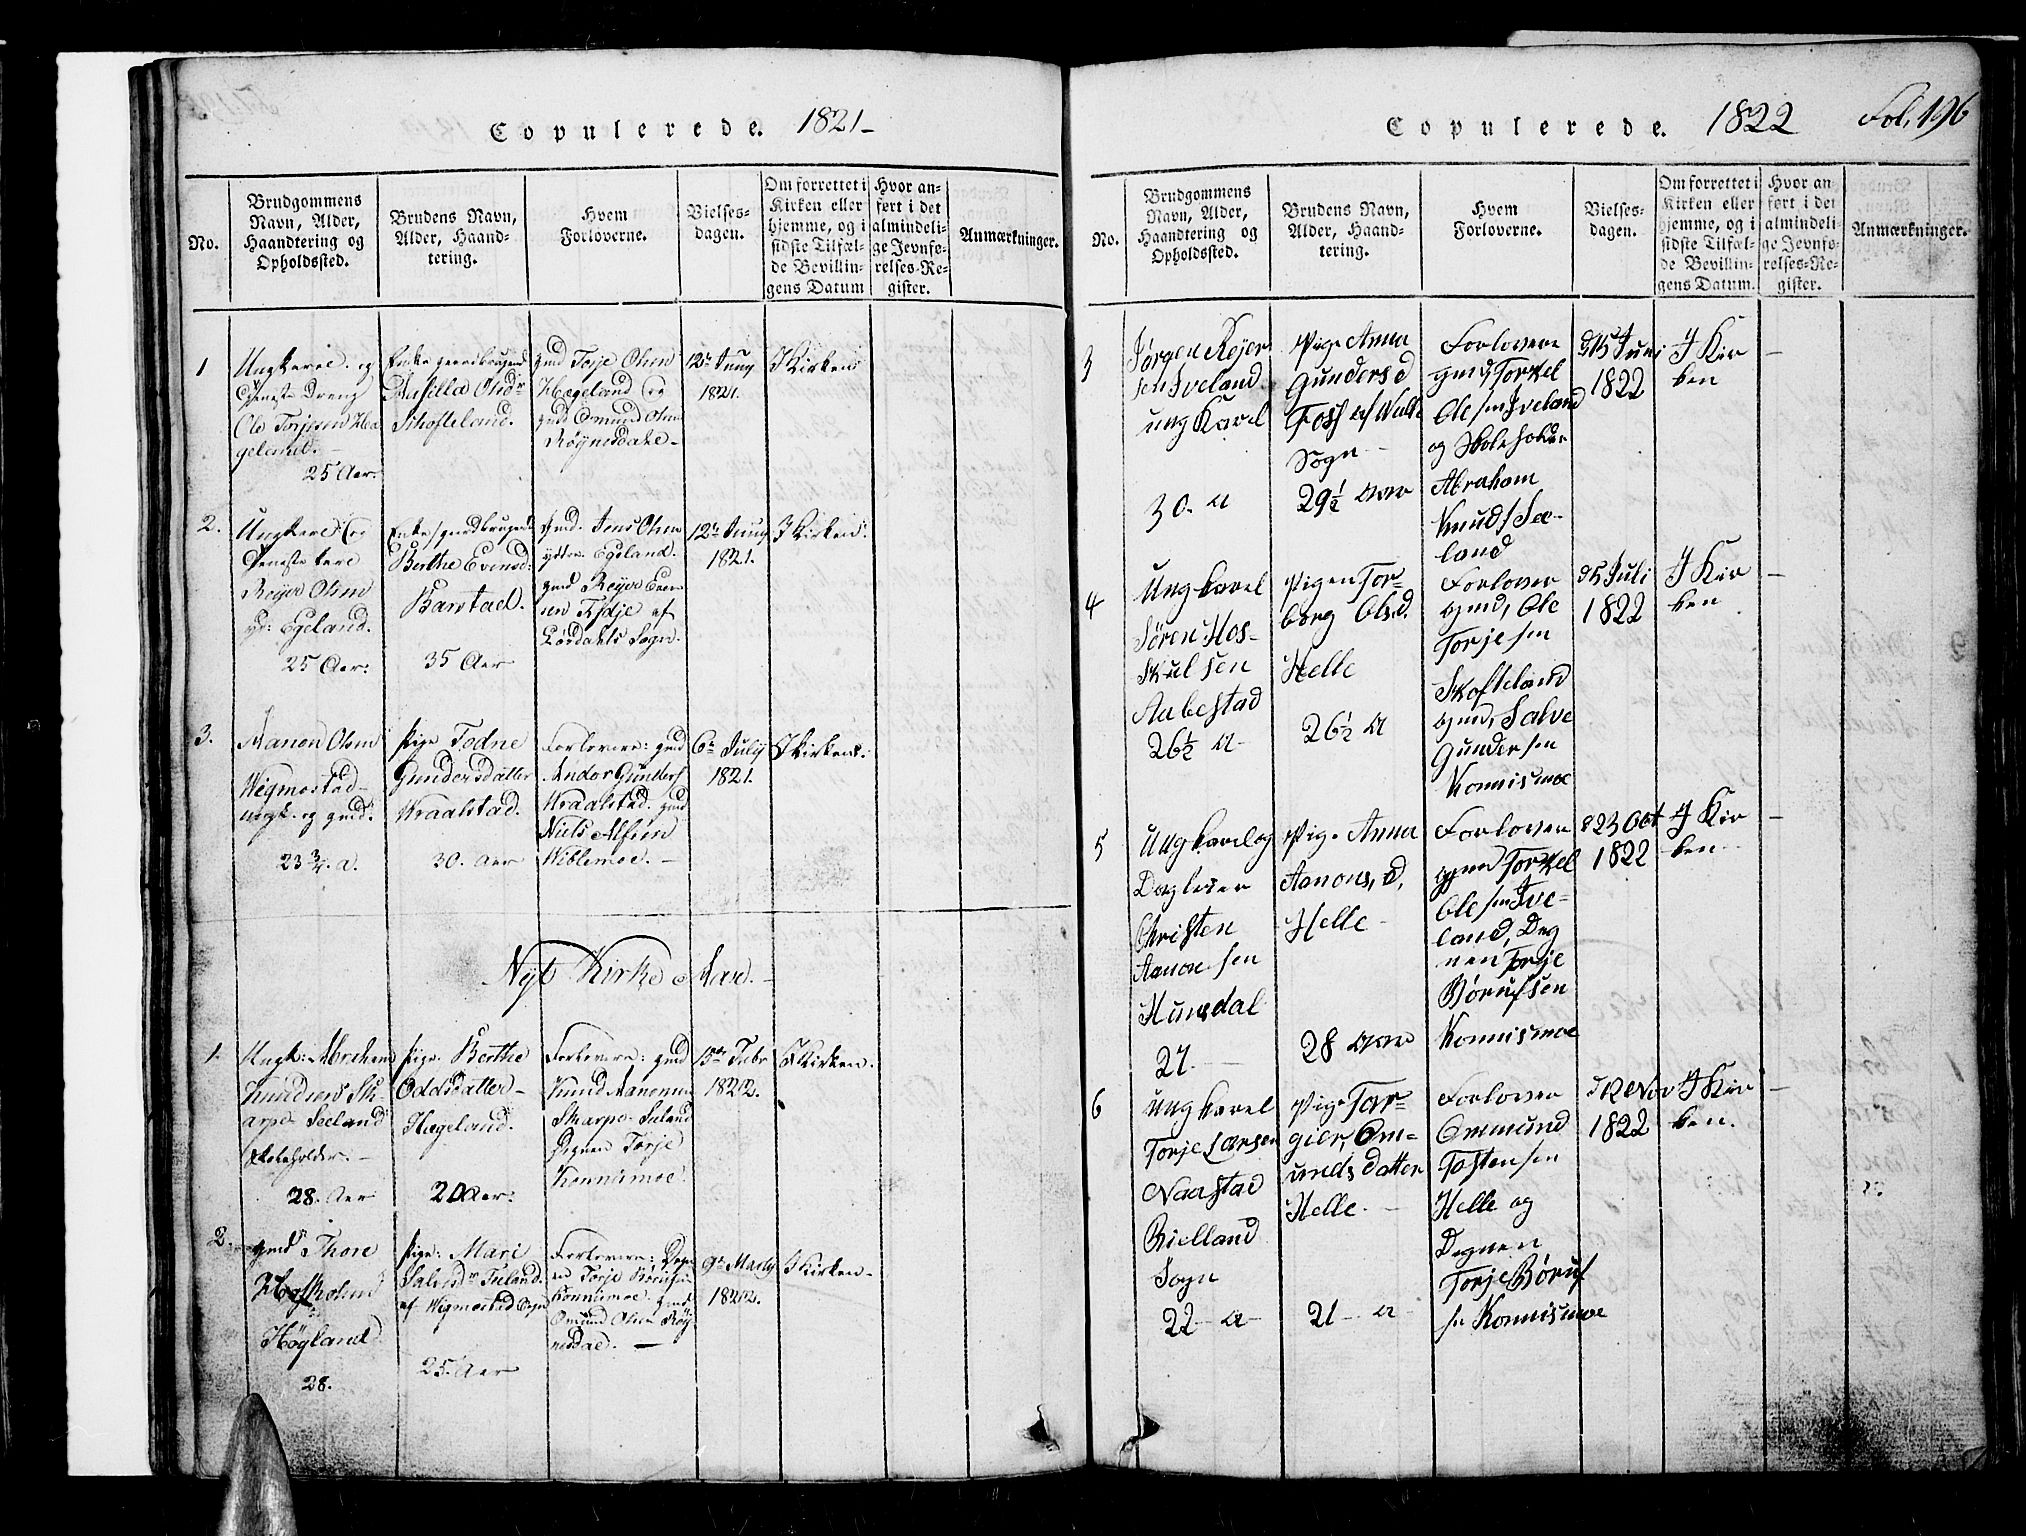 Copulerede. 1821-
No.
Brudgommens Navn, Alder, Haandtering og Opholdssted.
Brudens Navn, Alder, Haandtering.
Hvem Forloverne.
Vielses-dagen.
Om forrettet i Kirken eller hjemme, og i sidste Tilfælde Bevillingens Datum
Hvor anført i det almindelige Jevnførelses-Register.
Anmærkninger.
1
Ungkarl og
Tieneste Dreng
Ole Torjesen Hæ
geland.
25 Aar.
Enke gaardbrugend
Asilla Olsdr
Skofteland.
gmd Torje Olsen
Hægeland og
gmd Omund Olsen
Røynesdahl
12te Juny
1821.
I Kirken
2.
Ungkarl og
Tieneste karl
Reyer Olsen
yt: Egeland.
25 Aar.
Enke gaardbrugend
Berthe Evensd:
Barstad.
35 Aar
gmd. Jens Olsen
yttre Egeland.
gmd Reyer Even
sen
af
Sogn.
12te Juny
1821.
I Kirken.
3.
Aanon Olsen
Wigmostad
ungk. og gmd.
23 3/4. a.
Pige Todne
Gundersdatter
Kraalstad.
30. Aar
Forlovere: gmd
Andor Gunders
Kraalstad. gmd
Niels Alfsen
Wiblemoe.
6te July
1821.
I Kirken.
Nyt Kirke Aar.
1.
Ungk: Abraham
Knudsen Sk-
arpe Seeland
Skoleholder.
28. Aar
Pige. Berthe
Oddsdatter
Hægeland.
20 Aar.
Forlovere: gmd
Knud Aanonsen
Skarpe-Seeland
Degnen Torje
Konnismoe
15de Febr
1822.
I Kirken.
2.
gmd Thore
Høgland
28.
Pige: Mari
Salvesdr
af Wigmostad Sogn
25 Aar
Forlovere: Deg-
nen Torje Børufsen
Konnismoe. gmd
Omund Olsen Røy-
nesdal.
9de Marty
1822.
I Kirken
Copulerede. 1822 Fol. 196
No.
Brudgommens Navn, Alder, Haandtering og Opholdssted.
Brudens Navn, Alder, Haandtering.
Hvem Forloverne.
Vielses-dagen.
Om forrettet i Kirken eller hjemme, og i sidste Tilfælde Bevillingens Datum.
Hvor anført i det almindelige Jevnførelses-Register.
Anmærkninger.
3
Jørgen Reier
sen Iveland
ung Karel
30. a
Pige Anna
Gunders d
Foss af Valle
Sogn
29 1/2 aar
Forlovere
gmd, Torkel
Olesen Iveland
og Skoleholder
Abraham
Knuds See-
land
d 15 Juni
1822
I Kir
ken
4
Ungkarel
Søren Hos-
skulsen
Aabestad
26 1/2 a
Pigen Tor-
borg Ols.d.
Helle
26 1/2 a
Forlover
gmd, Ole
Torjesen
Skofteland
gmd, Salve
Gundersen
Konnismoe
d 5 Juli
1822
I Kir
ken
5
Ungkarel og
Dagleier
Christen
Aanonsen
Hunsdal
27.
Pige Anna
Aanons, d,
Helle
28 aar
Forlover
gmd Torkel
Olesen Ive-
land, Deg
nen Torje
Børufsen
Konnismoe
d 23 Oct
1822
I Kir
ken
6
ung karel
Torje Larsen
Naastad
Bielland
Sogn
22 a
Pige Tar-
gier, Om-
unds datter
Helle.
21 a
Forlover
Ommund
Tostensen
Helle og
Degnen
Torje Børuf
sn Konnismoe
d 12 Nov
1822
I Kir
ken.